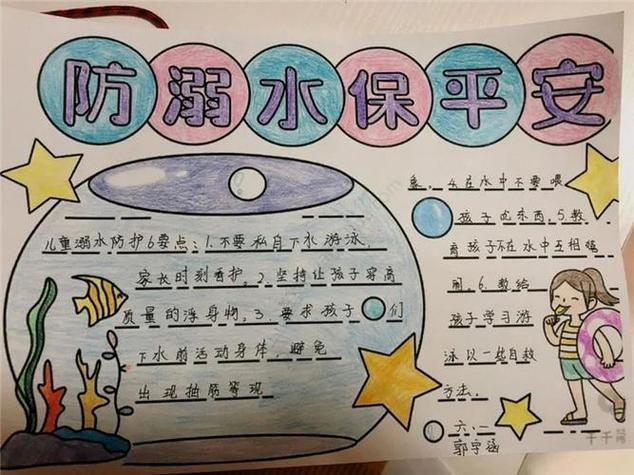 防溺水保平安
儿童溺水防护6要点：1.不要私自下水游泳，
家长时刻看护。2.坚持让孩子穿高
质量的浮身物。3.要求孩子们
下水前活动身体，避免
出现抽筋等现
象。4.在水中不要喂
孩子吃东西。5.教
育孩子不在水中互相
闹。6.教给
孩子学习游
泳以一些自救
方法。
六、二
郭宇涵
千千